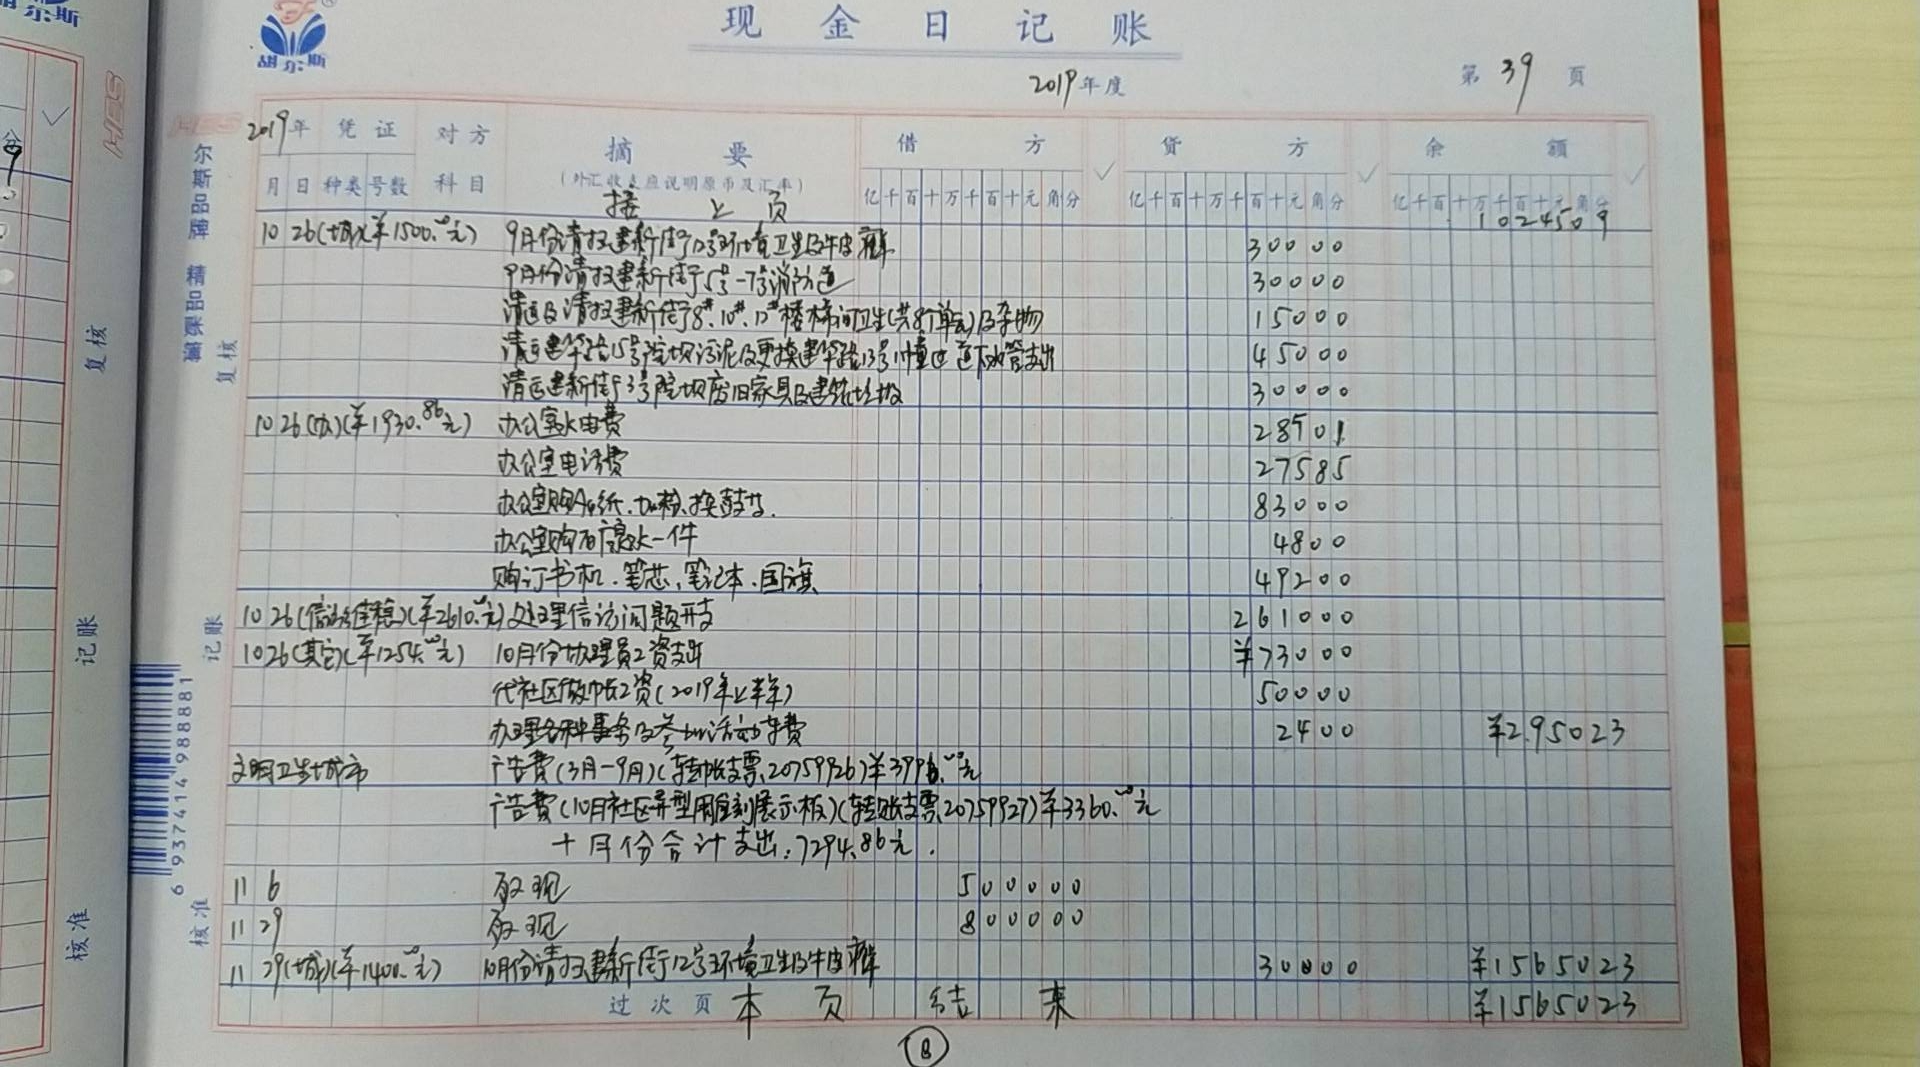 胡尔斯
现金日记账
2019年度
第 39 页
2019年 凭证 对方 摘要 借方 贷方 余额
(外汇收支应说明原币及汇率)
月 日 种类 号数 科目 亿千百十万千百十元角分 亿千百十万千百十元角分 亿千百十万千百十元角分
接上页 1024509
10 26(城)(¥1500.00元) 9月份清扫建新街12号环境卫生及牛皮癣 30000
9月份清扫建新街5号-7号消防通 30000
清运及清扫建新街8#.10#.12#楼梯间卫生(共8个单元)及杂物 15000
清运建华路15号院坝污泥及更换建华路13号1幢过道下水管支出 45000
清运建新街3号院坝废旧家具及建筑垃圾 30000
10 26(办)(¥1930.86元) 办公室水电费 28501
办公室电话费 27585
办公室购A4纸、加粉、换鼓芯. 83000
办公室购矿泉水一件 4800
购订书机、笔芯、笔记本、国旗 49200
10 26(信访维稳)(¥2610.00元) 处理信访问题开支 261000
10 26(其它)(¥1254.00元) 10月份协理员工资支出 ¥73000
代社区做帐工资(2019年上半年) 50000
办理各种事务及参加活动车费 2400 ¥295023
文明卫生城市 广告费(3月-9月)(转帐支票20759926)¥3996.00元
广告费(10月社区异型雕刻展示板)(转账支票20759927)¥3360.00元
十月份合计支出:7294.86元.
11 6 取现 500000
11 29 取现 800000
11 29(城)(¥1400.00元) 10月份清扫建新街12号环境卫生及牛皮癣 30000 ¥1565023
过次页 本页结束 ¥1565023
8
尔斯品牌 精品账簿
复核
记账
核准
6 937414 988881
复核
记账
核准